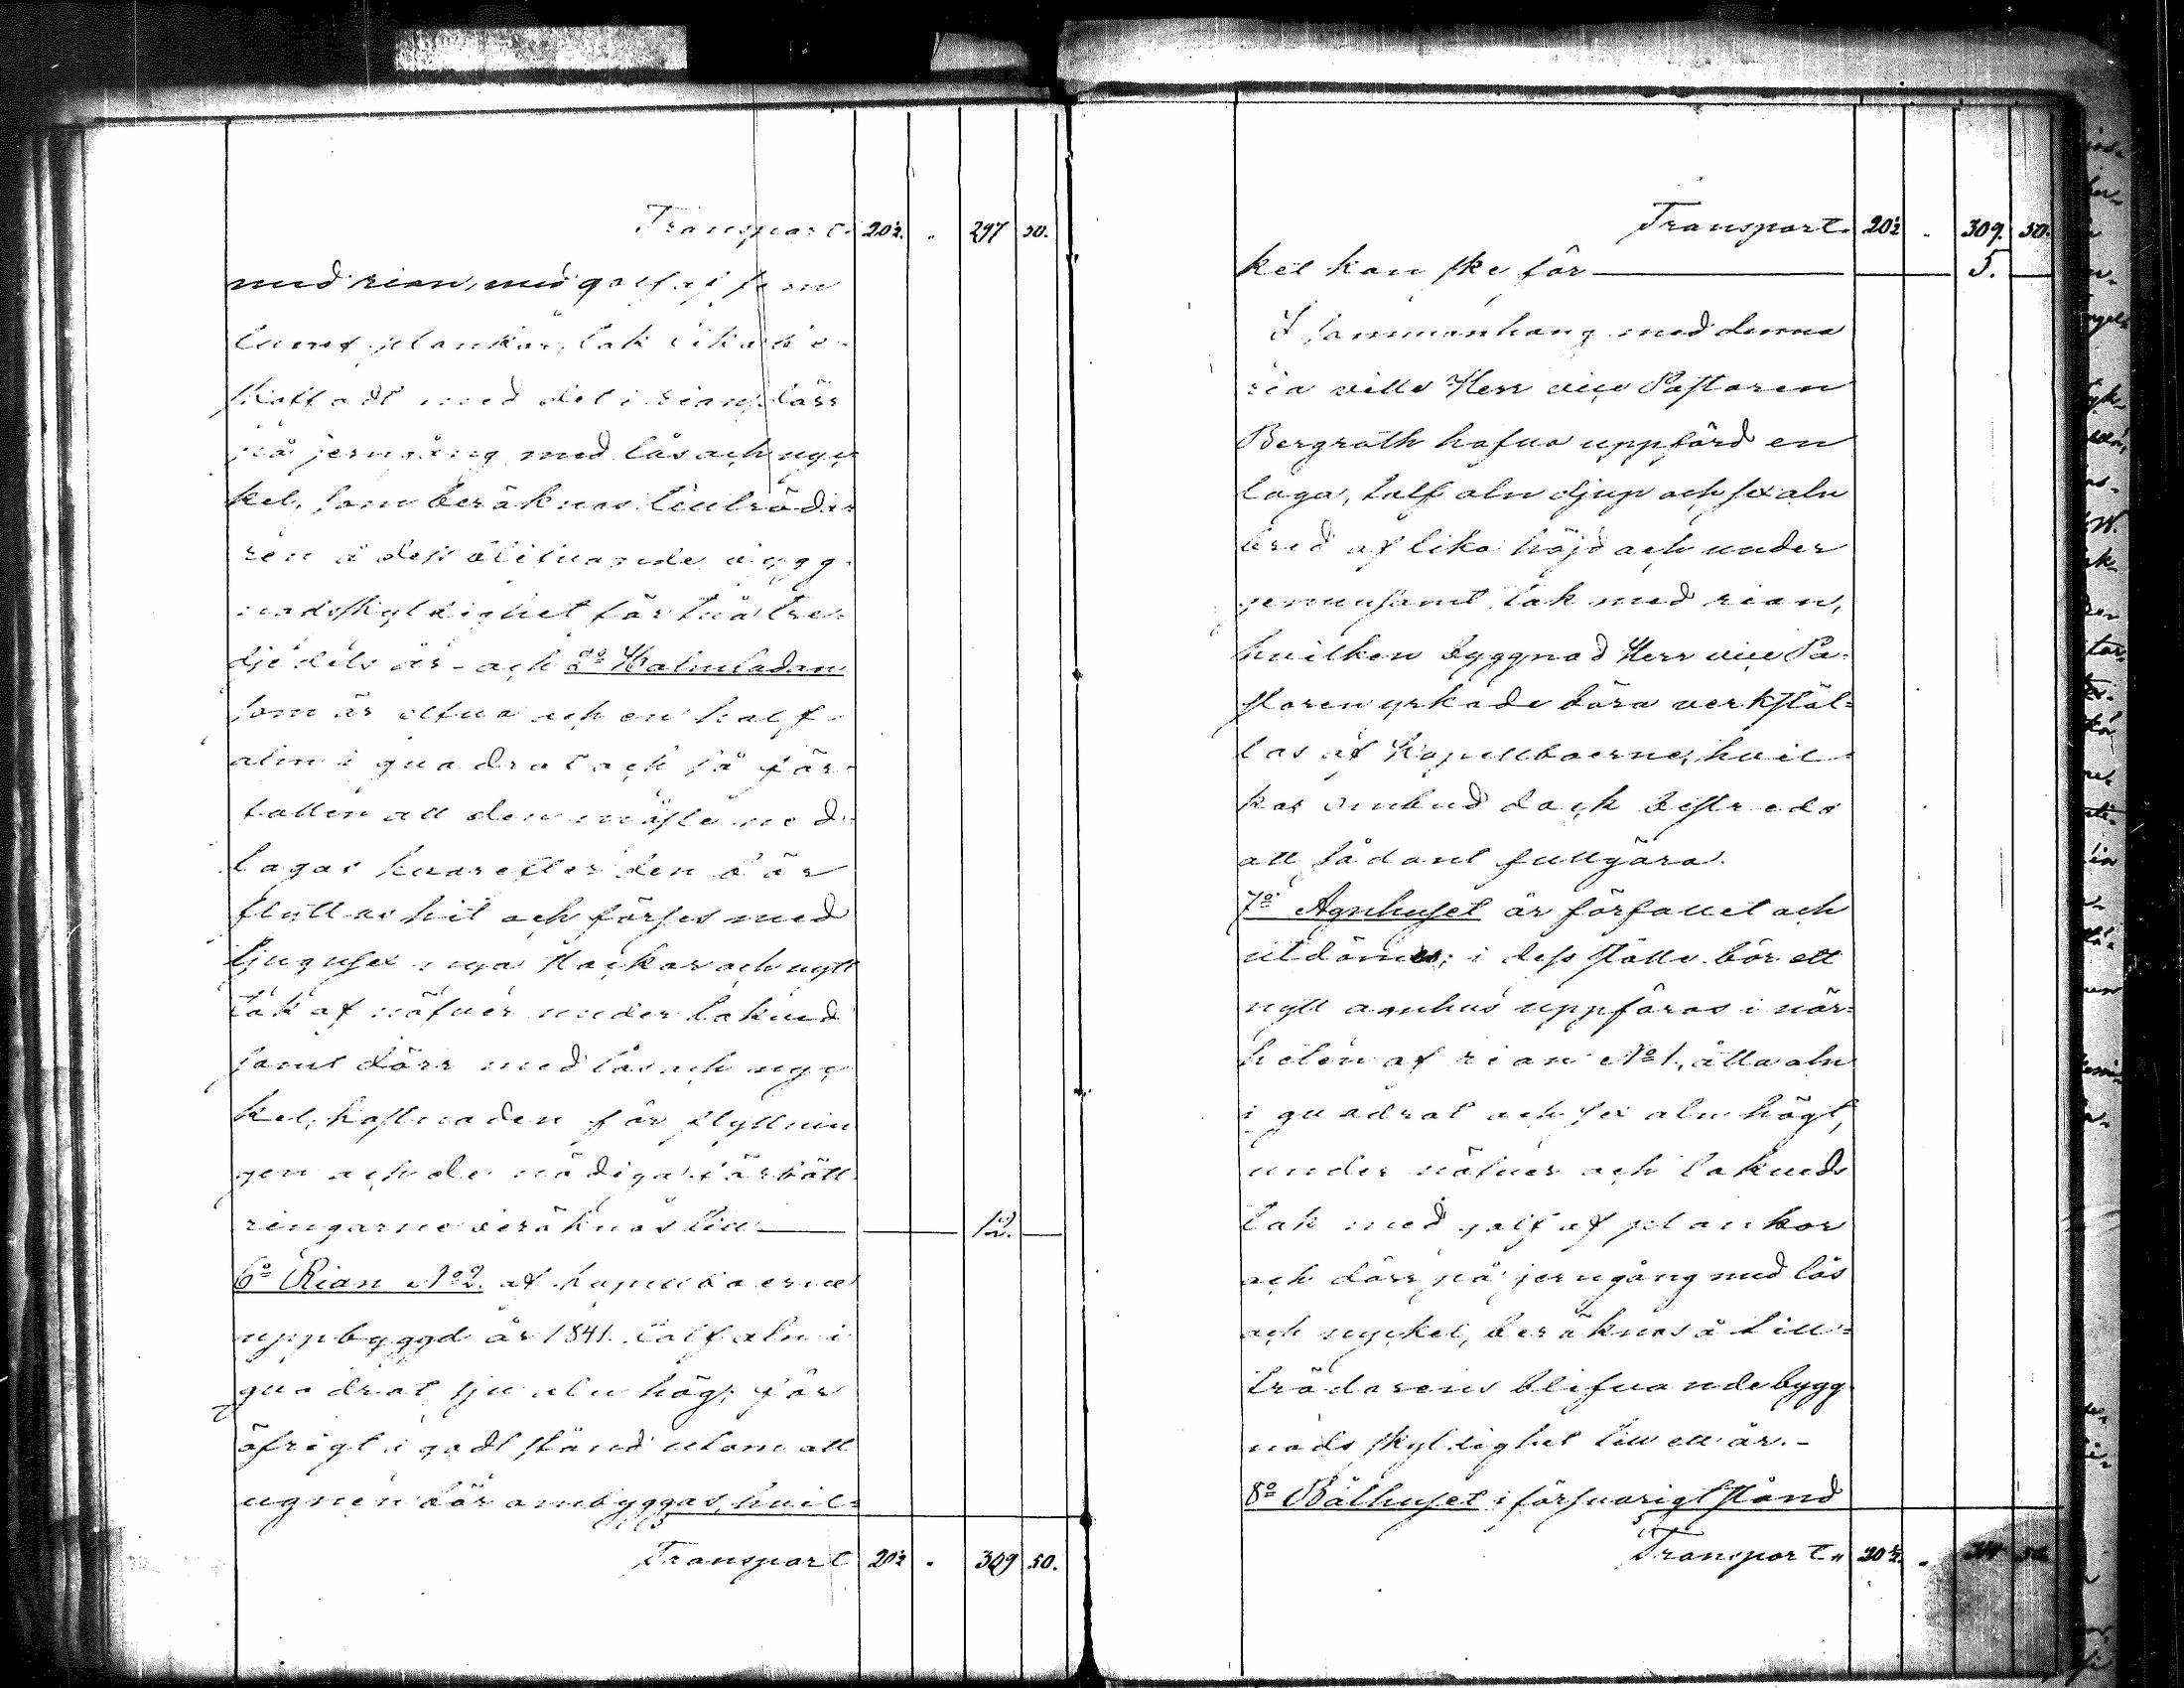 Transport. 20½. . 297 50.
med rian, med golf af fem
tums plankor, tak lika be-
skaffadt med det i rian, dörr
på jerngång med lås och nyc-
kel, som beräknas till träda-
ren å dess blifvande bygg-
nadsskyldighet för två tre-
djedels år - och do Halmladan
som är elfva och en half
aln i quadrat och så för-
fallen att den måste ned-
tagas hvarefter den bör
flyttas hit och förses med
tjugusex nya stockar och nytt
tak af näfver under takved
samt dörr med lås och nyc-
kel, kostnaden för flyttnin
gen och de nödiga förbätt
ringarne beräknas till 12.
6o Rian No 2. af kapellboerne
uppbyggd år 1841. tolf aln i
quadrat, sju aln hög; för
öfrigt i godt stånd utom att
ugnen bör ombyggas, hvil-
Transport 20½ . 309 50.
Transport. 20½ . 309. 50.
ket kan ske för 5.
I sammanhang med denna
ria ville Herr vice Pastoren
Bergroth hafva uppförd en
loga, tolf aln djup och sex aln
bred af lika höjd och under
gemensamt tak med rian,
hvilken byggnad Herr vice Pa-
storen yrkade böra verkstäl-
las af Kapellboerne, hvil-
kas ombud dock bestreds
att sådant fullgöra.
7o Agnhuset är förfallet och
utdömes; i dess ställe bör ett
nytt agnhus uppföras i när-
heten af rian No 1., åtta aln
i quadrat och sex aln högt,
under näfver och takveds
tak med golf af plankor
och dörr på jerngång med lås
och nyckel, beräknas å till-
trädarens blifvande bygg
nads skyldighet till ett år. -
8o Bålhuset i försvarigt stånd
Transport. 20½. . 314 50